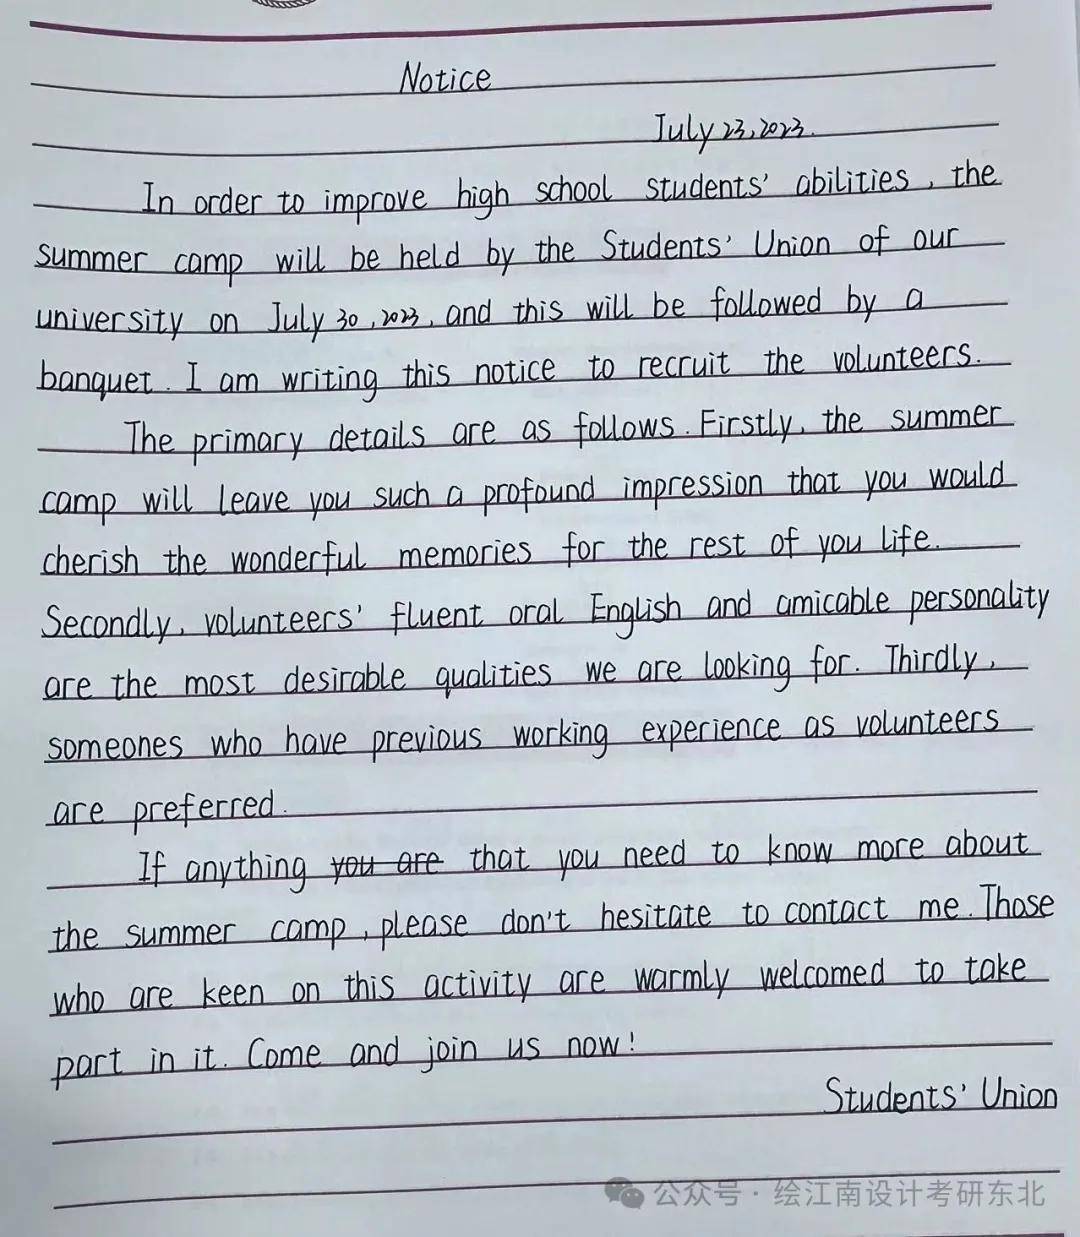 Notice
July 23, 2023.
In order to improve high school students' abilities, the
summer camp will be held by the Students' Union of our
university on July 30, 2023, and this will be followed by a
banquet. I am writing this notice to recruit the volunteers.
The primary details are as follows. Firstly, the summer
camp will leave you such a profound impression that you would
cherish the wonderful memories for the rest of you life.
Secondly, volunteers' fluent oral English and amicable personality
are the most desirable qualities we are looking for. Thirdly,
someones who have previous working experience as volunteers
are preferred.
If anything you are that you need to know more about
the summer camp, please don't hesitate to contact me. Those
who are keen on this activity are warmly welcomed to take
part in it. Come and join us now!
Students' Union
公众号·绘江南设计考研东北